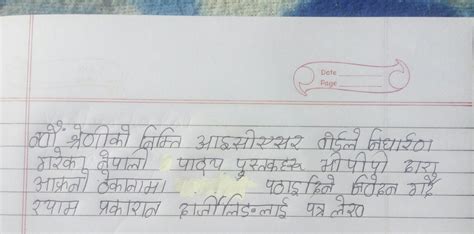 Date
Page
नवौँ श्रेणीको निम्ति आइसीएसइ बोर्डले निर्धारण
गरेका नेपाली पाठ्य पुस्तकहरू भीपीपी द्वारा
आफ्नो ठेकानामा पठाइदिने निवेदन गर्दै
श्याम प्रकाशन दार्जीलिङलाई पत्र लेख